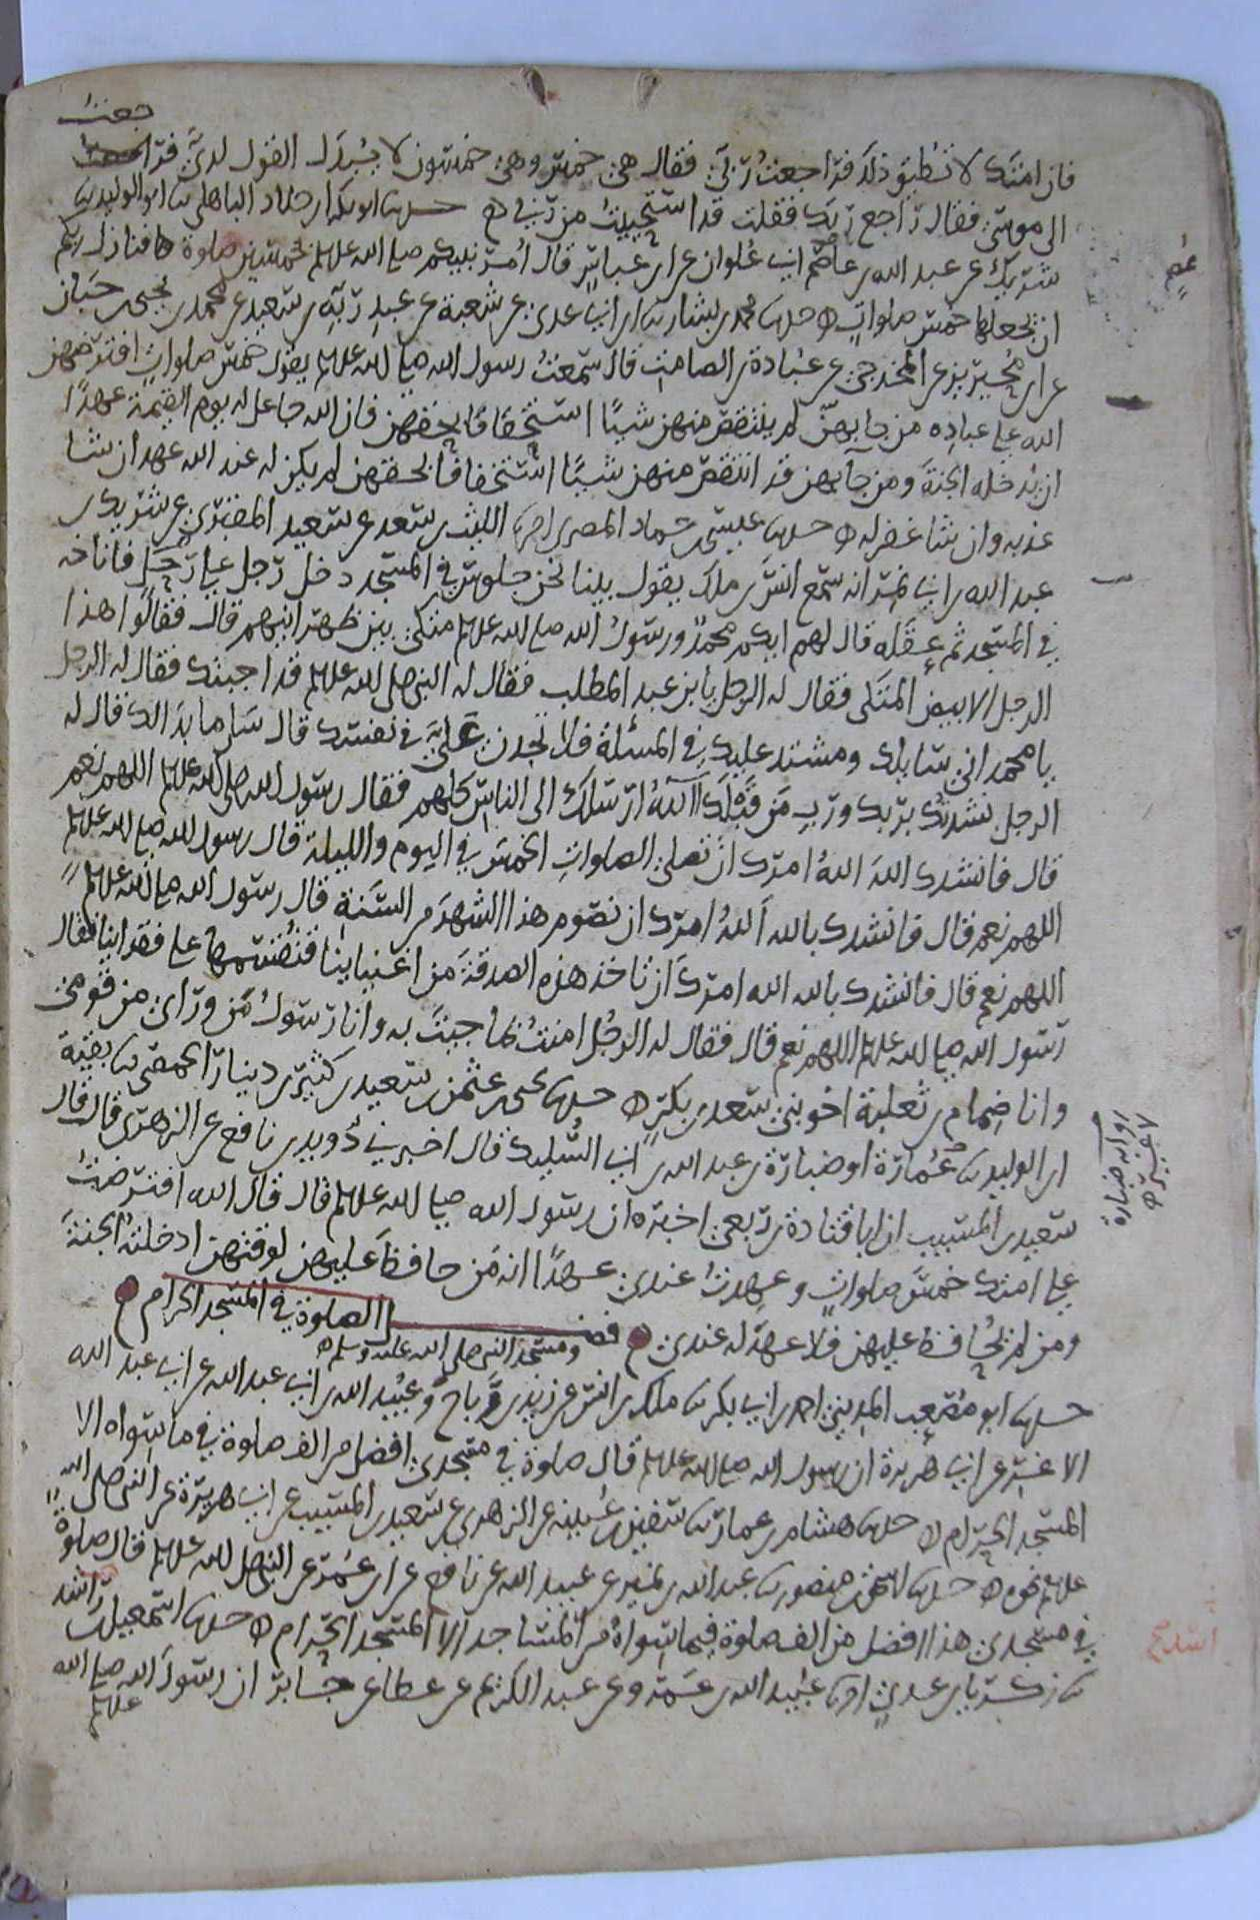 فان امتك لا تطيق ذلك فراجعت ربي فقال هي خمس وهي خمسون لا يبدل القول لدي فرجعت
الى موسى فقال راجع ربك فقلت قد استحييت من ربي ه حدثنا ابو بكر ابن خلاد الباهلي ثنا ابو الوليد ثنا
شريك عن عبد الله بن عاصم ابي علوان عن ابن عباس قال امر نبيكم صلى الله عليه وسلم بخمسين صلوة فنازل ربكم
ان يجعلها خمس صلوات ه حدثنا محمد بن بشار ثنا ابن ابي عدي عن شعبة عن عبد ربه بن سعيد عن محمد بن يحيى بن حبان
عن ابن محيريز عن المخدجي عن عبادة بن الصامت قال سمعت رسول الله صلى الله عليه وسلم يقول خمس صلوات افترضهن
الله على عباده من جا بهن لم ينتقص منهن شيئا استخفافا بحقهن فان الله جاعل له يوم القيمة عهدا
ان يدخله الجنة ومن جا بهن قد انتقص منهن شيئا استخفافا بحقهن لم يكن له عند الله عهد ان شا
عذبه وان شا غفر له ه حدثنا عيسى بن حماد المصري انا الليث بن سعد عن سعيد المقبري عن شريك بن
عبد الله بن ابي نمر انه سمع انس بن ملك يقول بينا نحن جلوس في المسجد دخل رجل على جمل فاناخه
في المسجد ثم عقله قال لهم ايكم محمد ورسول الله صلى الله عليه وسلم متكئ بين ظهرانيهم قال فقالوا هذا
الرجل الابيض المتكى فقال له الرجل يا ابن عبد المطلب فقال له النبي صلى الله عليه وسلم قد اجبتك فقال له الرجل
يا محمد اني سايلك ومشتد عليك في المسئلة فلا تجدن علي في نفسك قال سل ما بدا لك قال له
الرجل نشدتك بربك ورب من قبلك الله ارسلك الى الناس كلهم فقال رسول الله صلى الله عليه وسلم اللهم نعم
قال فانشدك الله الله امرك ان تصلي الصلوات الخمس في اليوم والليلة قال رسول الله صلى الله عليه وسلم
اللهم نعم قال فانشدك بالله الله امرك ان تصوم هذا الشهر من السنة قال رسول الله صلى الله عليه وسلم
اللهم نعم قال فانشدك بالله الله امرك ان تاخذ هذه الصدقة من اغنياينا فتقسمها على فقراينا فقال
رسول الله صلى الله عليه وسلم اللهم نعم قال فقال له الرجل امنت بما جيت به وانا رسول من وراي من قومي
وانا ضمام بن ثعلبة اخو بني سعد بن بكر ه حدثنا يحيى بن عثمن بن سعيد بن كثير بن دينار الحمصي ثنا بقية
ابن الوليد ثنا عمارة او ضبارة بن عبد الله بن ابي السليك قال اخبرني دويد بن نافع عن الزهري قال قال
سعيد بن المسيب ان ابا قتادة بن ربعي اخبره ان رسول الله صلى الله عليه وسلم قال قال الله افترضت
على امتك خمس صلوات وعهدت عندي عهدا انه من حافظ عليهن لوقتهن ادخلته الجنة
ومن لم يحافظ عليهن فلا عهد له عندي ه فضل الصلوة في المسجد الحرام
ومسجد النبي صلى الله عليه وسلم
حدثنا ابو مصعب المديني احمد بن ابي بكر ثنا ملك بن انس عن زيد بن رباح وعبيد الله بن ابي عبد الله عن ابي عبد الله
الاغر عن ابي هريرة ان رسول الله صلى الله عليه وسلم قال صلوة في مسجدي افضل من الف صلوة في ما سواه الا
المسجد الحرام ه حدثنا هشام بن عمار ثنا سفين بن عيينة عن الزهري عن سعيد بن المسيب عن ابي هريرة عن النبي صلى الله
عليه وسلم نحوه ه حدثنا اسحق بن منصور ثنا عبد الله بن نمير عن عبيد الله عن نافع عن ابن عمر عن النبي صلى الله عليه وسلم قال صلوة
في مسجدي هذا افضل من الف صلوة فيما سواه من المساجد الا المسجد الحرام ه حدثنا اسمعيل بن راشد
ثنا زكريا بن عدي انا عبيد الله بن عمرو عن عبد الكريم عن عطا عن جابر ان رسول الله صلى الله
عليه وسلم
رواية ضبارة
لا غير